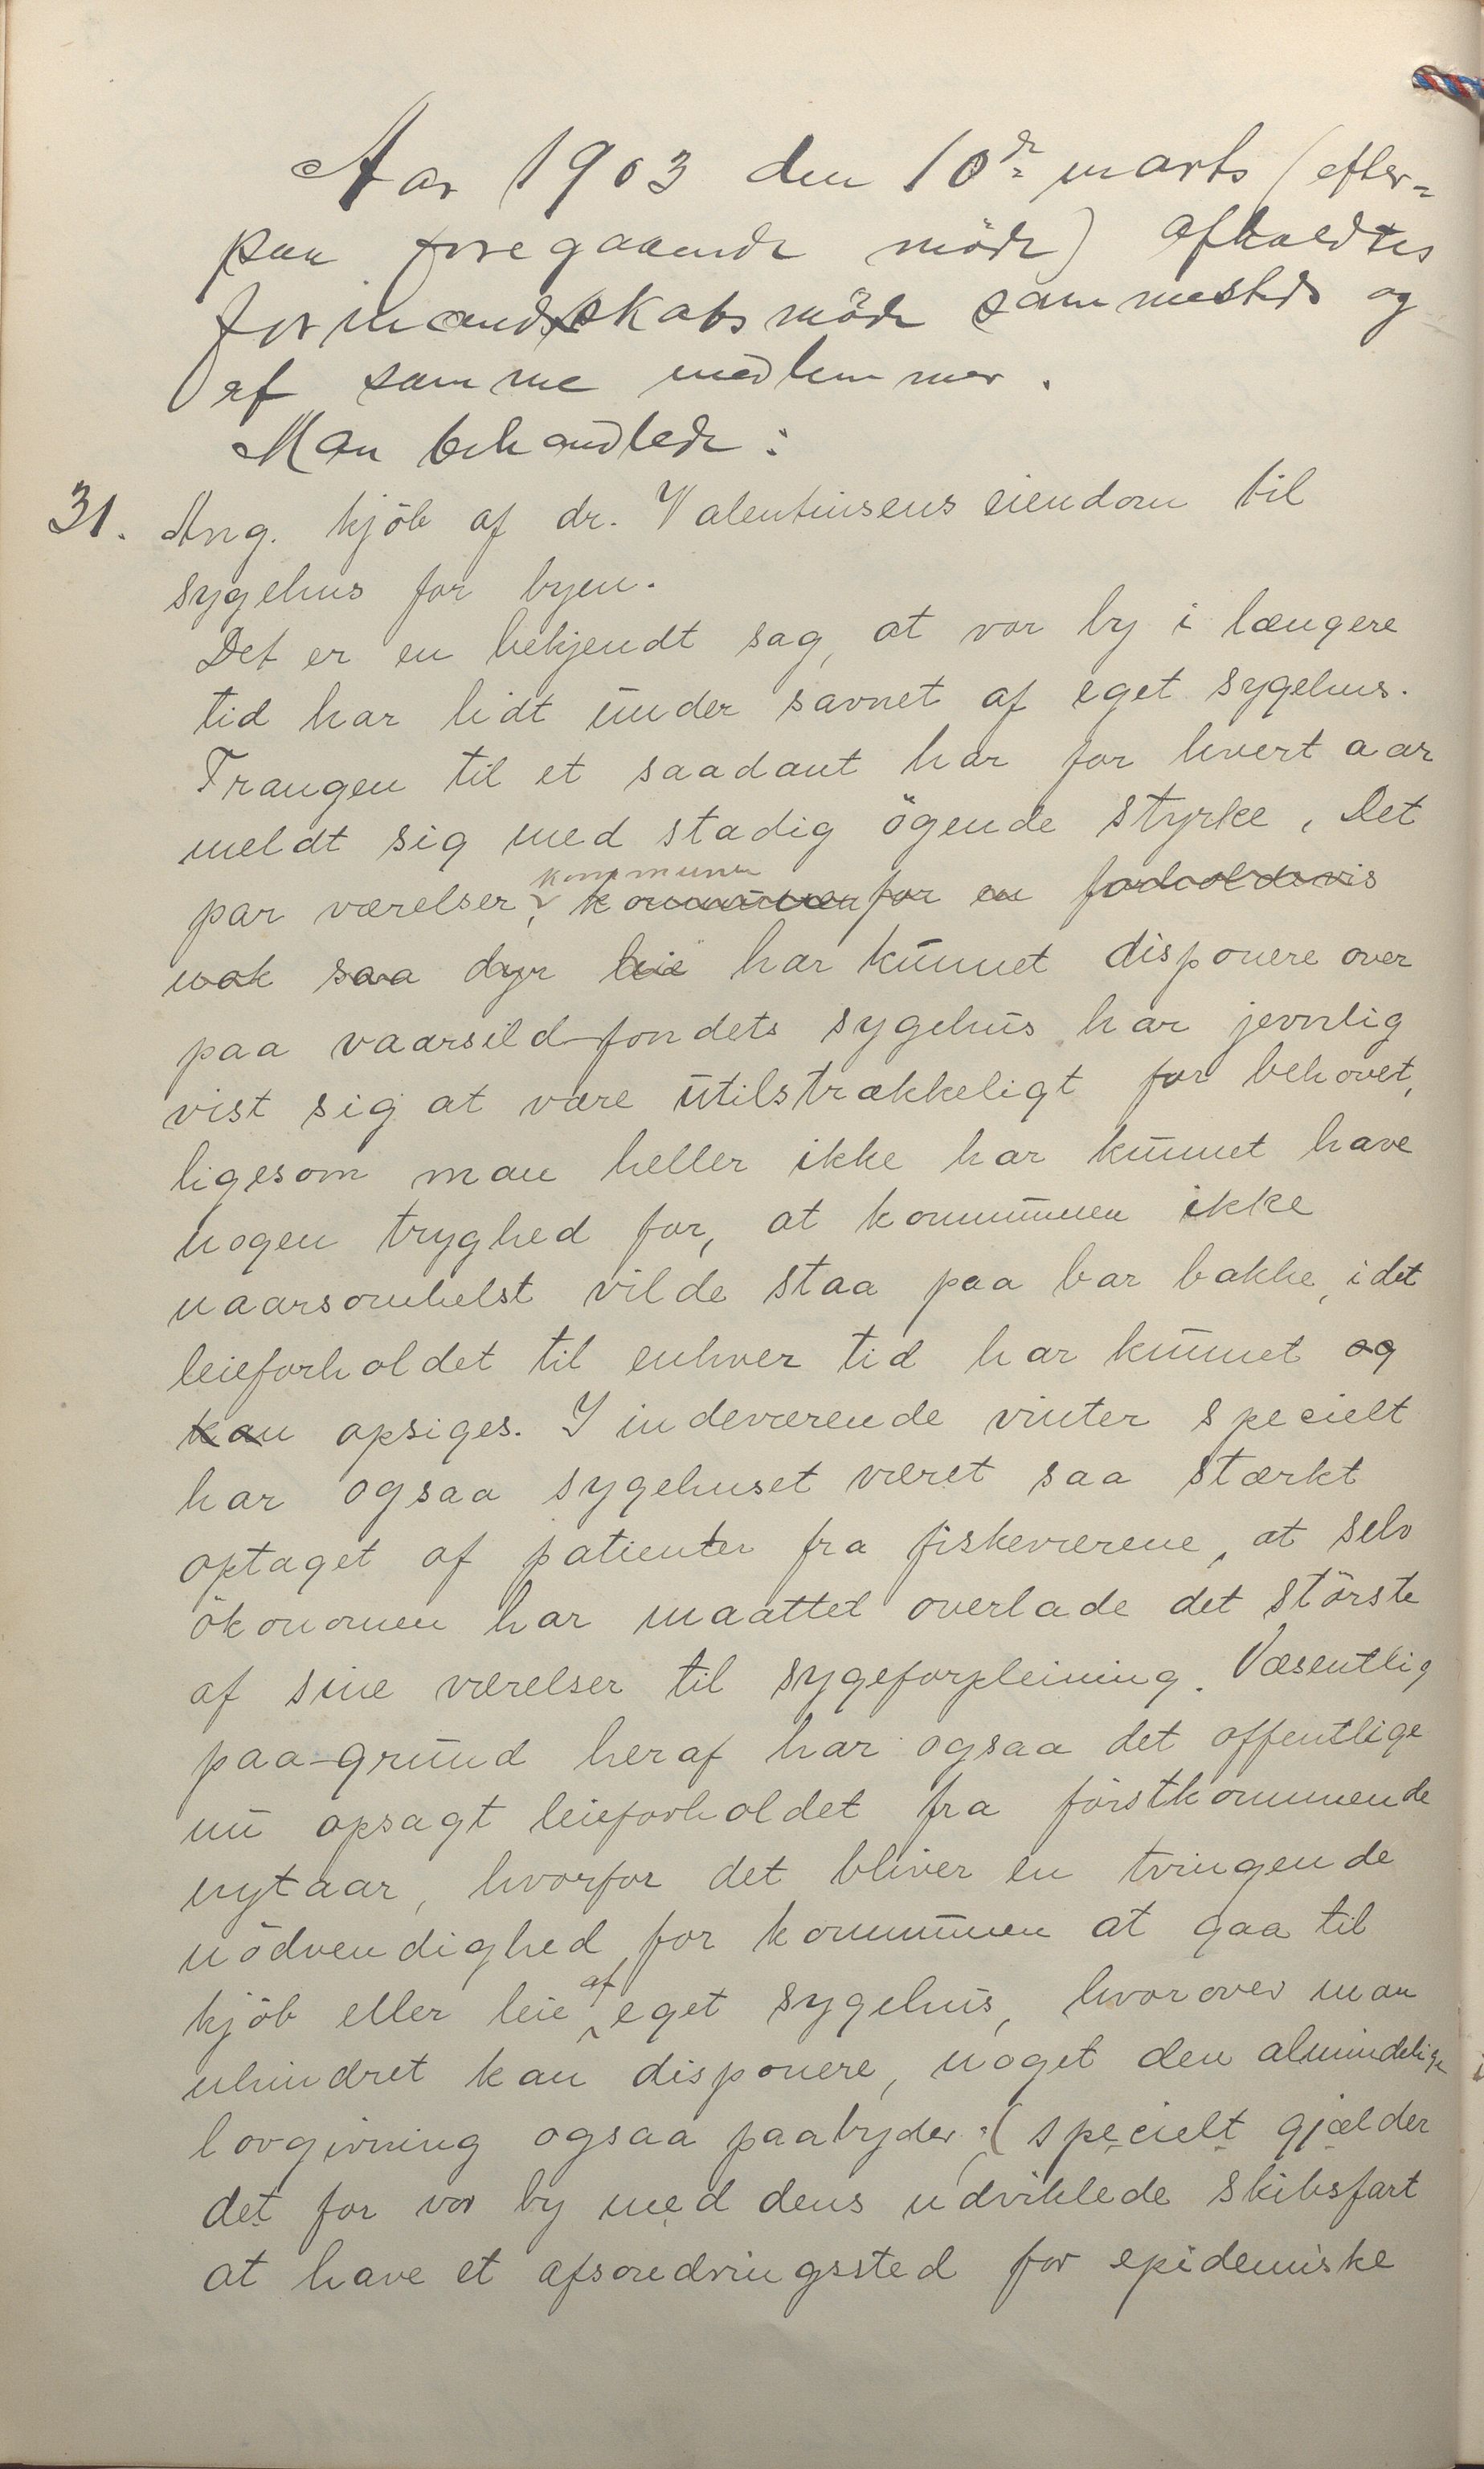 Aar 1903 den 10de marts (efter-
paa foregaaende möde) afholdtes
formandskabsmöde sammesteds og
af samme medlemmer.
Man behandlede:
31. Ang. kjöb af dr. Valentinsens eiendom til
sygehus for byen.
Det er en bekjendt sag, at vor by i længere
tid har lidt under savnet af eget sygehus.
Trangen til et saadant har for hvert aar
meldt sig med stadig ögende styrke, Det
kommunen
par værelser, kommunen for en forholdsvis
nok saa dyr leie har kunnet disponere over
paa vaarsildfondets sygehus har jevnlig
vist sig at være utilstrækkeligt for behovet,
ligesom man heller ikke har kunnet have
nogen tryghed for, at kommunen ikke
naarsomhelst vilde staa paa bar bakke, idet
leieforholdet til enhver tid har kunnet og
kan opsiges. I indeværende vinter specielt
har ogsaa sygehuset været saa stærkt
optaget af patienter fra fiskeværene, at selv
ökonomen har maattet overlade det störste
af sine værelser til sygeforpleining. Væsentlig
paa grund heraf har ogsaa det offentlige
nu opsagt leieforholdet fra förstkommende
nytaar, hvorfor det bliver en tvingende
nödvendighed for kommunen at gaa til
kjöb eller leie af eget sygehus, hvorover man
uhindret kan disponere, noget den almindelige
lovgivning ogsaa paabyder; (specielt gjælder
det for vor by med dens udviklede skibsfart
at have et afsondringssted for epidemiske